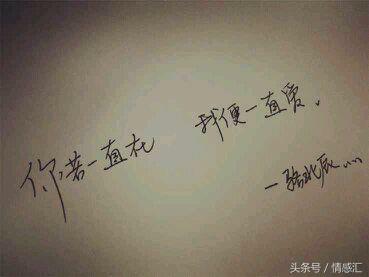 你若一直在 我便一直爱.
—骆北辰....
头条号/情感汇